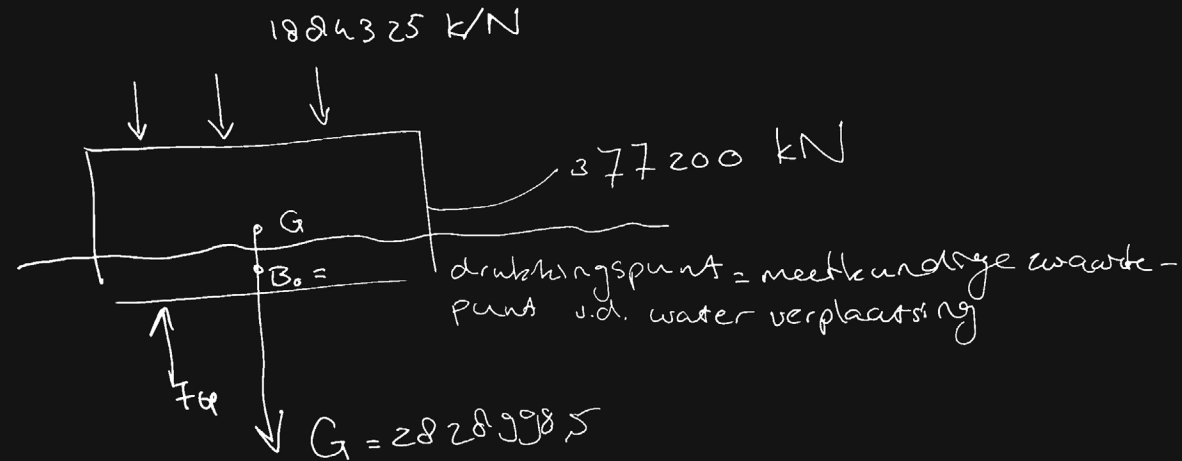 1884325 k/N
377200 kN
G
B₀ =
drukkingspunt = meetkundige zwaarte-
punt v.d. water verplaatsing
G = 2828998,5